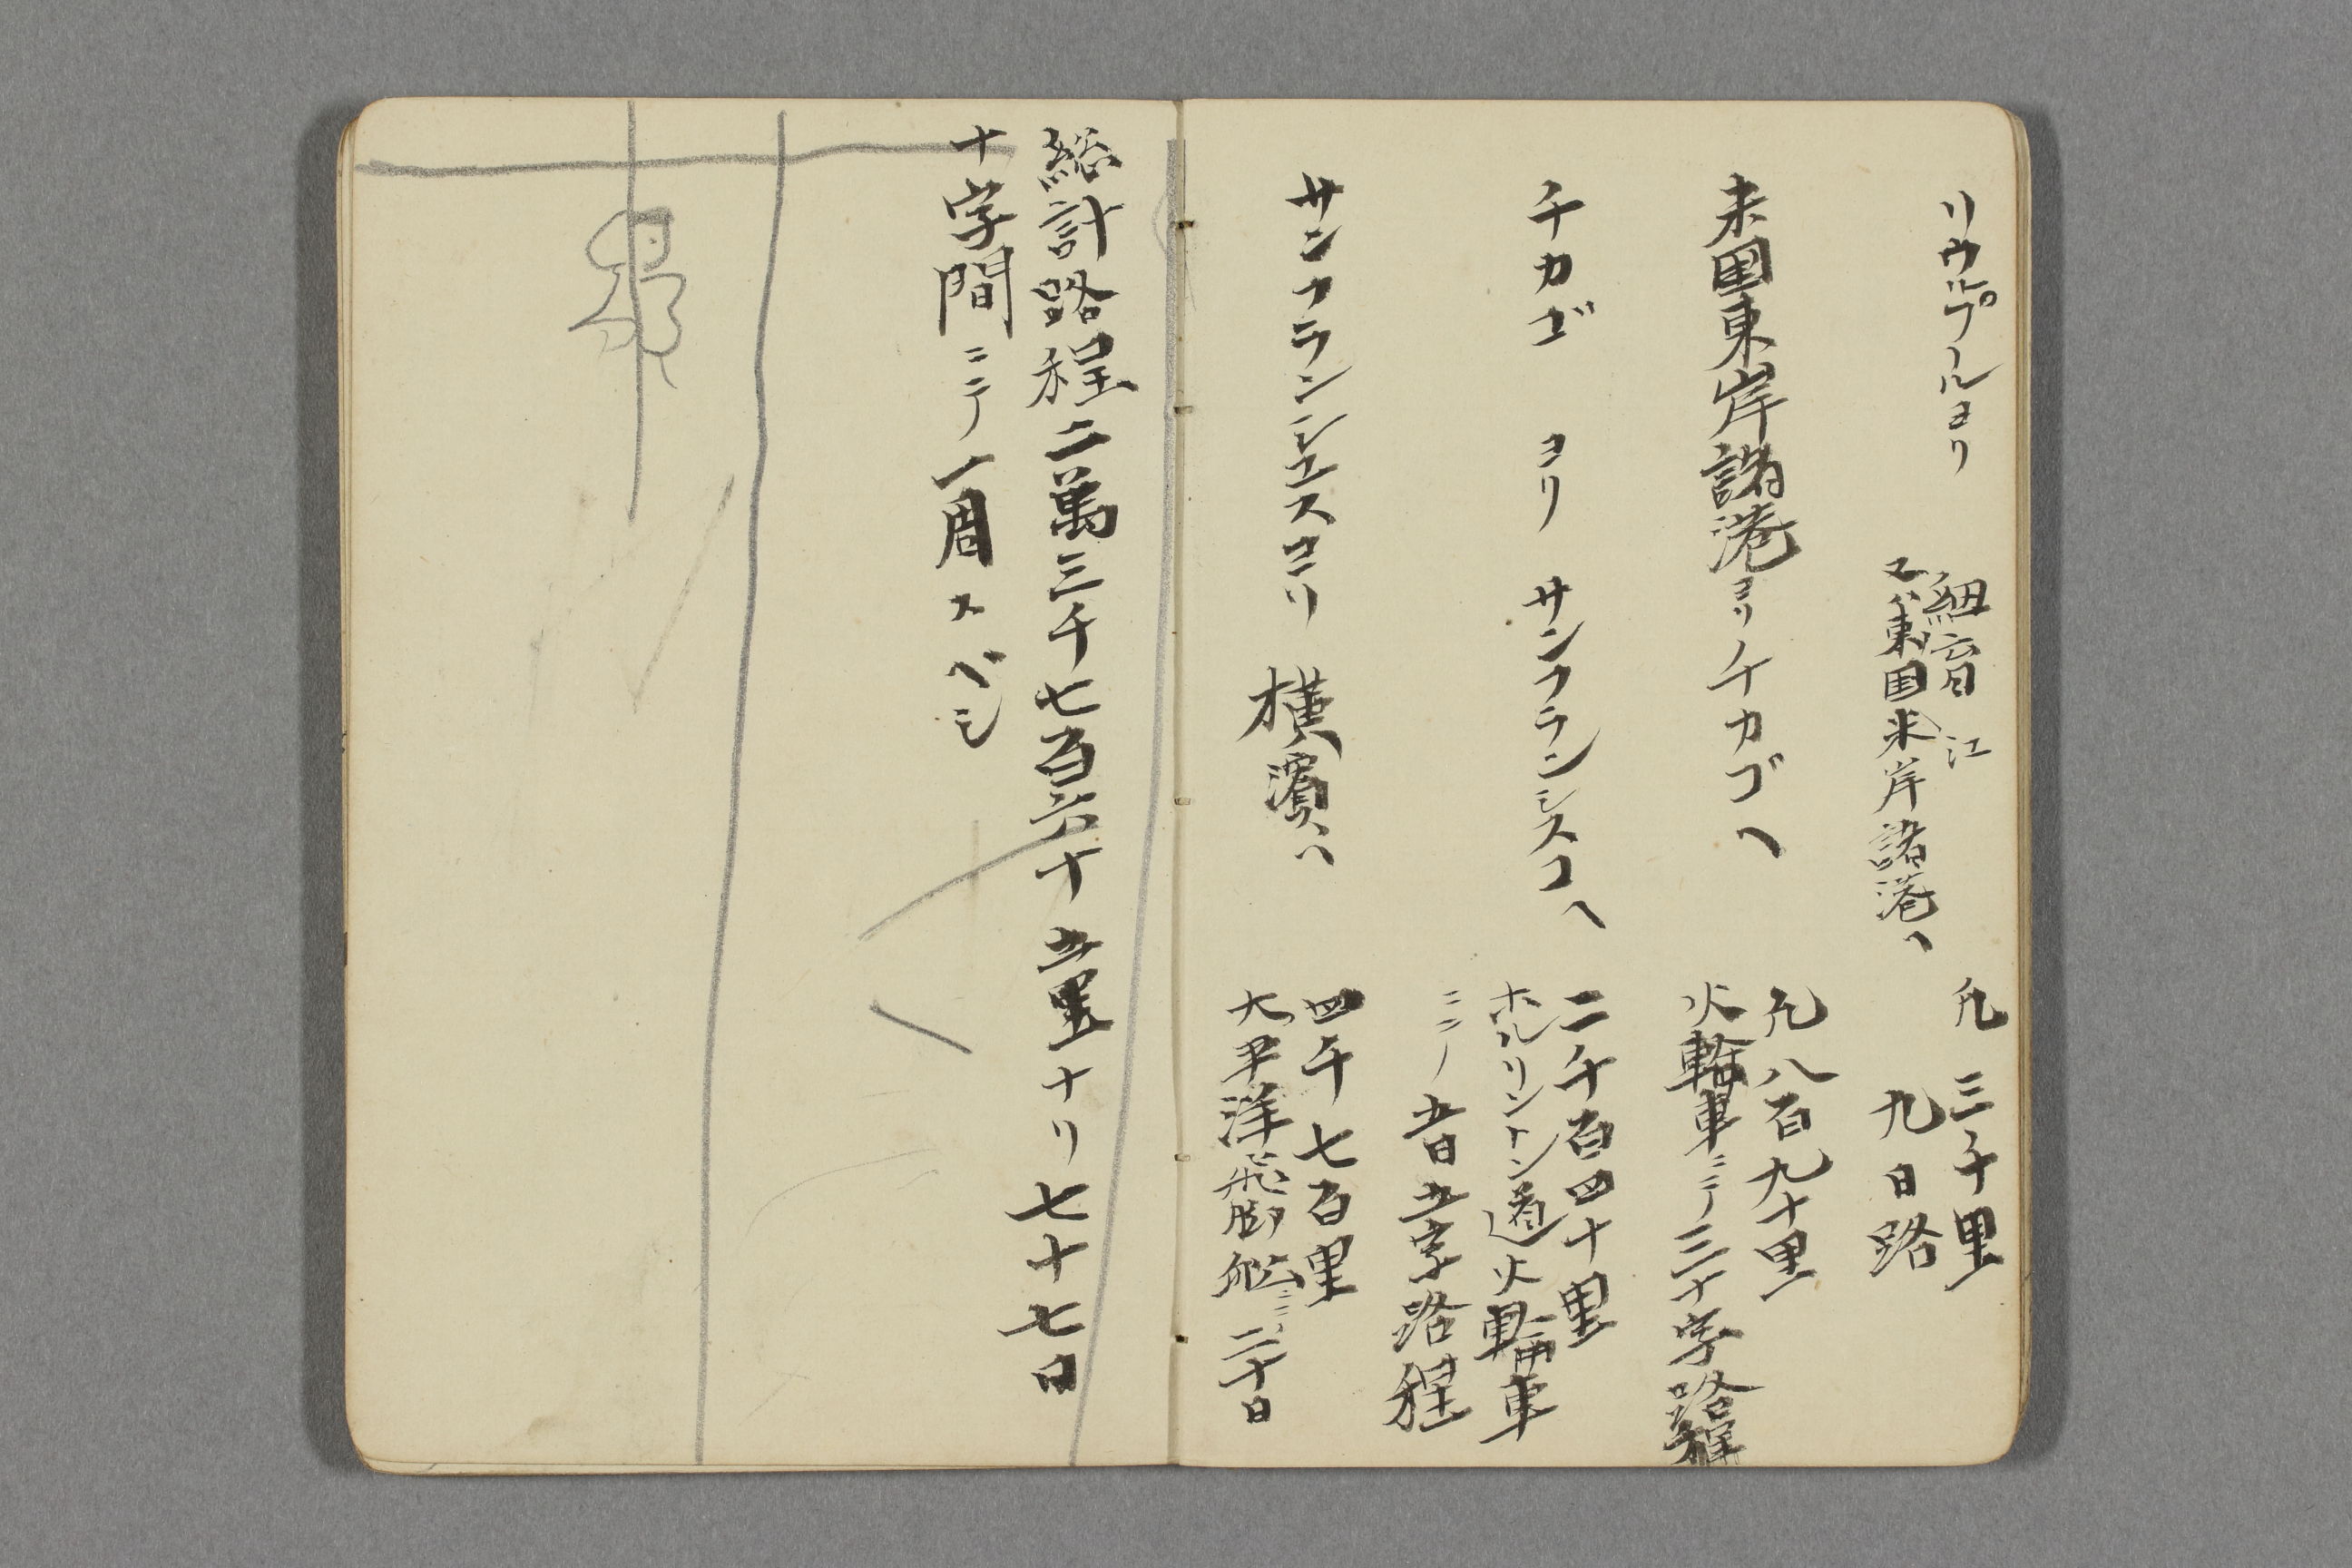 リウルプールヨリ
紐育江
又ハ東国米岸諸港ヘ
凡三千里
九日路
米国東岸諸港ヨリチカゴヘ
凡八百九十里
火輪車ニテ三十字路程
チカゴヨリサンフランシスコヘ
二千百四十里
ホルリントン道火輪車
ニテ五日五字路程
サンフランシエスコヨリ横濱ヘ
四千七百里
大平洋飛脚船ニテ二十日
総計路程二萬三千七百六十五里ナリ七十七日
十字間ニテ一周スベシ